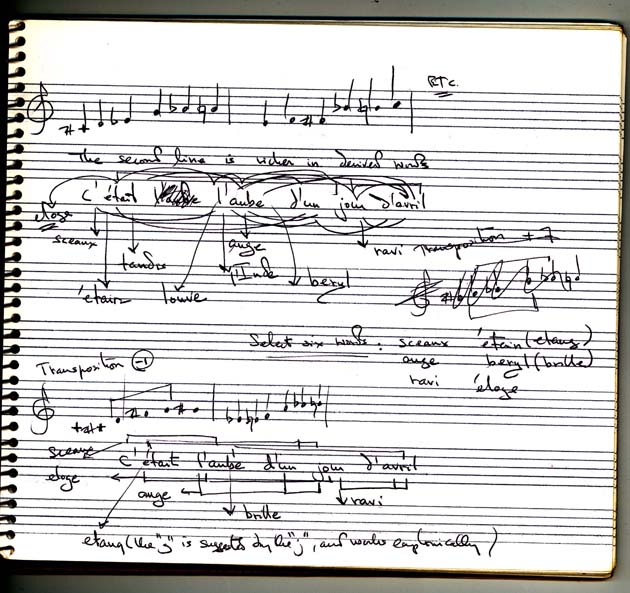 etc.
The second line is richer in derived words
c'était l'aube d'un jour d'avril
eloge
sceaux
ange
ravi Transposition + 7
tandis
l'Inde
étain louve beryl
Select six words: sceaux étain (etang)
ange beryl (brille)
ravi éloge
Transposition -1
sceaux
c'était l'aube d'un jour d'avril
eloge
ange ravi
brille
etang (the "g" is suggested by the "j", and works euphonically)